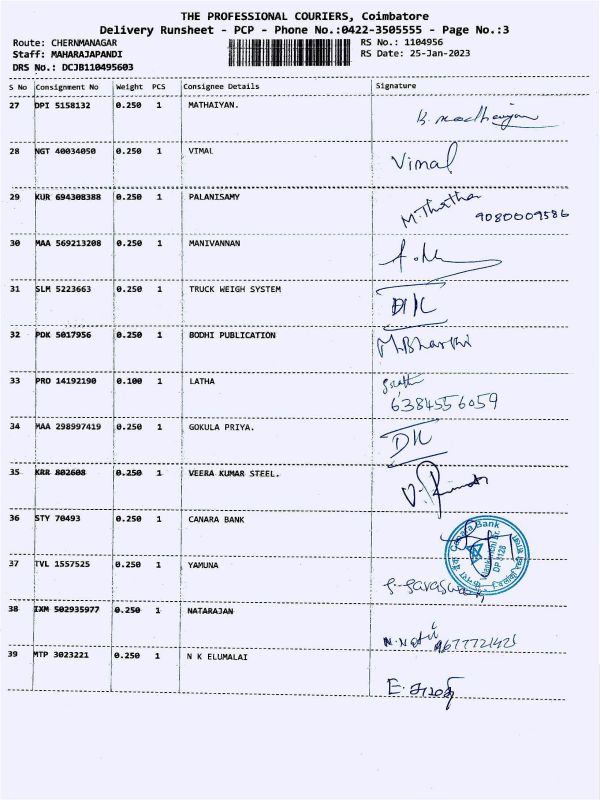 THE PROFESSIONAL COURIERS, Coimbatore
Delivery Runsheet - PCP - Phone No.:0422-3505555 - Page No.:3
Route: CHERNMANAGAR RS No.: 1104956
Staff: MAHARAJAPANDI RS Date: 25-Jan-2023
DRS No.: DCJB110495603
S No Consignment No Weight PCS Consignee Details Signature
27 DPI 5158132 0.250 1 MATHAIYAN.
28 NGT 40034050 0.250 1 VIMAL Vimal
29 KUR 694308388 0.250 1 PALANISAMY 9080009586
30 MAA 569213208 0.250 1 MANIVANNAN
31 SLM 5223663 0.250 1 TRUCK WEIGH SYSTEM
32 PDK 5017956 0.250 1 BODHI PUBLICATION
33 PRO 14192190 0.100 1 LATHA
6384556059
34 MAA 298997419 0.250 1 GOKULA PRIYA.
35 KRR 802608 0.250 1 VEERA KUMAR STEEL.
36 STY 70493 0.250 1 CANARA BANK
Canara Bank
DP 8128
37 TVL 1557525 0.250 1 YAMUNA
38 IXM 502935977 0.250 1 NATARAJAN
39 MTP 3023221 0.250 1 N K ELUMALAI